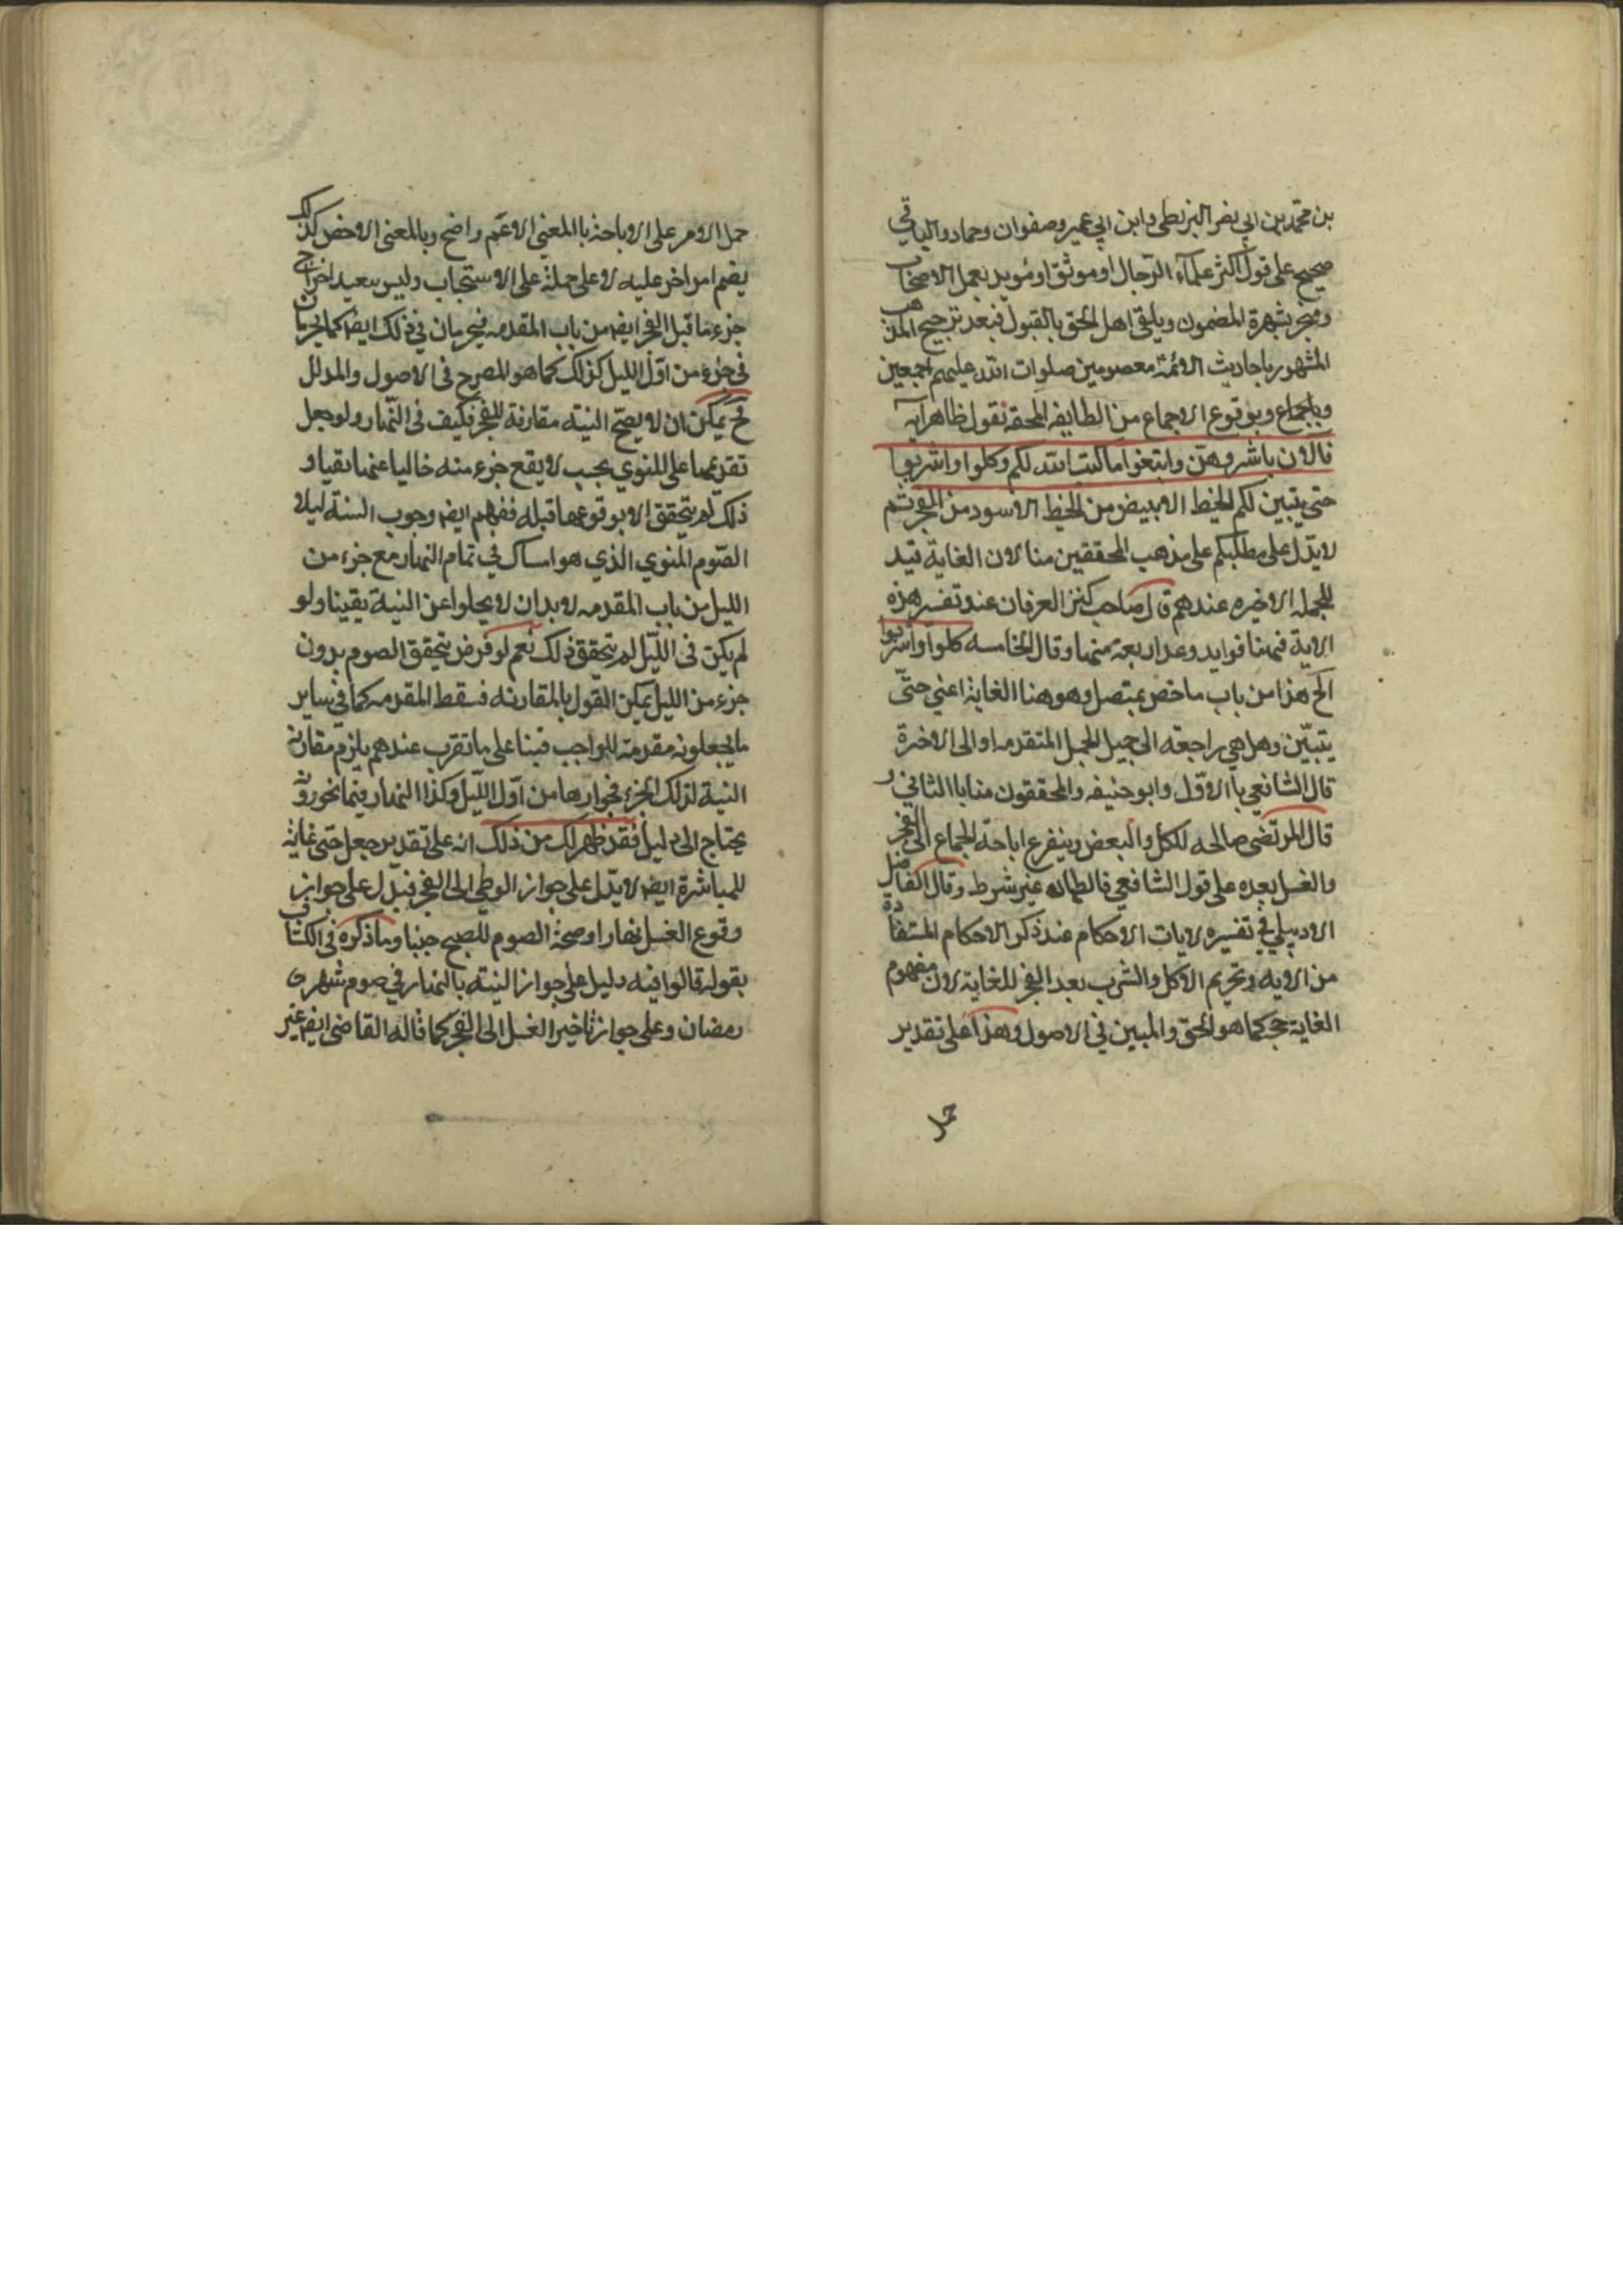 بن محمد بن ابي نصر البزنطي وابن ابي عمير وصفوان وحماد والباقي
صحيح على قول اكثر علماء الرجال او موثق او مؤيد بعمل الاصحاب
ومنجبر بشهرة المضمون وبلقي اهل الحق بالقبول فبعد ترجيح المذهب
المشهور باحاديث الائمة معصومين صلوات الله عليهم اجمعين
وباجماع وبوقوع الاجماع من الطايفه المحقه نقول ظاهر آيه
فالان باشروهن وابتغوا ما كتب الله لكم وكلوا واشربوا
حتى يتبين لكم الخيط الابيض من الخيط الاسود من الفجر ثم
لا يدل على مطلبكم على مذهب المحققين منا لان الغاية قيد
للجمله الاخيره عندهم قال صاحب كنز العرفان عند تفسير هذه
الاية فهنا فوايد وعد اربعة منها وقال الخامسه كلوا واشربوا
الخ هذا من باب ما خص بمتصل وهو هنا الغاية اعني حتى
يتبين وهل هي راجعة الى جميل الجمل المتقدمه او الى الاخرة
قال الشافعي بالاول وابو حنيفه والمحققون منا بالثاني و
قال المرتضى صالحه للكل والبعض ويتفرع اباحة الجماع الى الفجر
والغسل بعده على قول الشافعي فالطهاره غير شرط وقال الفاضل
الاردبيلي في تفسيره لايات الاحكام عند ذكر الاحكام المستفادة
من الايه وتحريم الاكل والشرب بعد الفجر للغاية لان مفهوم
الغاية حجة كما هو الحق والمبين في الاصول وهذا على تقدير
حمل
حمل الامر على الاباحة بالمعني الاعم واضح وبالمعنى الاخص كذلك
يضم امر اخر عليه لا على حمله على الاستحباب وليس ببعيد اخراج
جزء ما قبل الفجر ايضا من باب المقدمه فيحرمان في ذلك ايضا كما يحرمان
في جزء من اول الليل كذلك كما هو المصرح في الاصول والمدلل
فح يمكن ان لا يصح النية مقارنة للفجر فكيف في النهار ولو جعل
تقديمها على المنوي بحيث لا يقع جزء منه خاليا عنها يقينا و
ذلك لم يتحقق الا بوقوعها قبله ففهم ايضا وجوب النية ليلا
الصوم المنوي الذي هو امساك في تمام النهار مع جزء من
الليل من باب المقدمه لا بد ان لا يخلوا عن النية يقينا ولو
لم يكن في الليل لم يتحقق ذلك نعم لو فرض تحقق الصوم بدون
جزء من الليل يمكن القول بالمقارنه فسقط المقدمه كما في ساير
ما يجعلونه مقدمة للواجب فبنا على ما تقرب عندهم يلزم مقارنة
النية لذلك الجزء فجوازها من اول الليل وكذا النهار فيما نحن فيه
يحتاج الى دليل فقد ظهر لك من ذلك انه على تقدير جعل حتى غاية
للمباشرة ايضا لا يدل على جواز الوطي الى الفجر فيدل على جواز
وقوع الغسل نهارا وصحة الصوم للمصبح جنبا وما ذكره في الكشاف
بقوله قالوا فيه دليل على جواز النية بالنهار في صوم شهر
رمضان وعلى جواز تاخير الغسل الى الفجر كما قاله القاضي ايضا غير